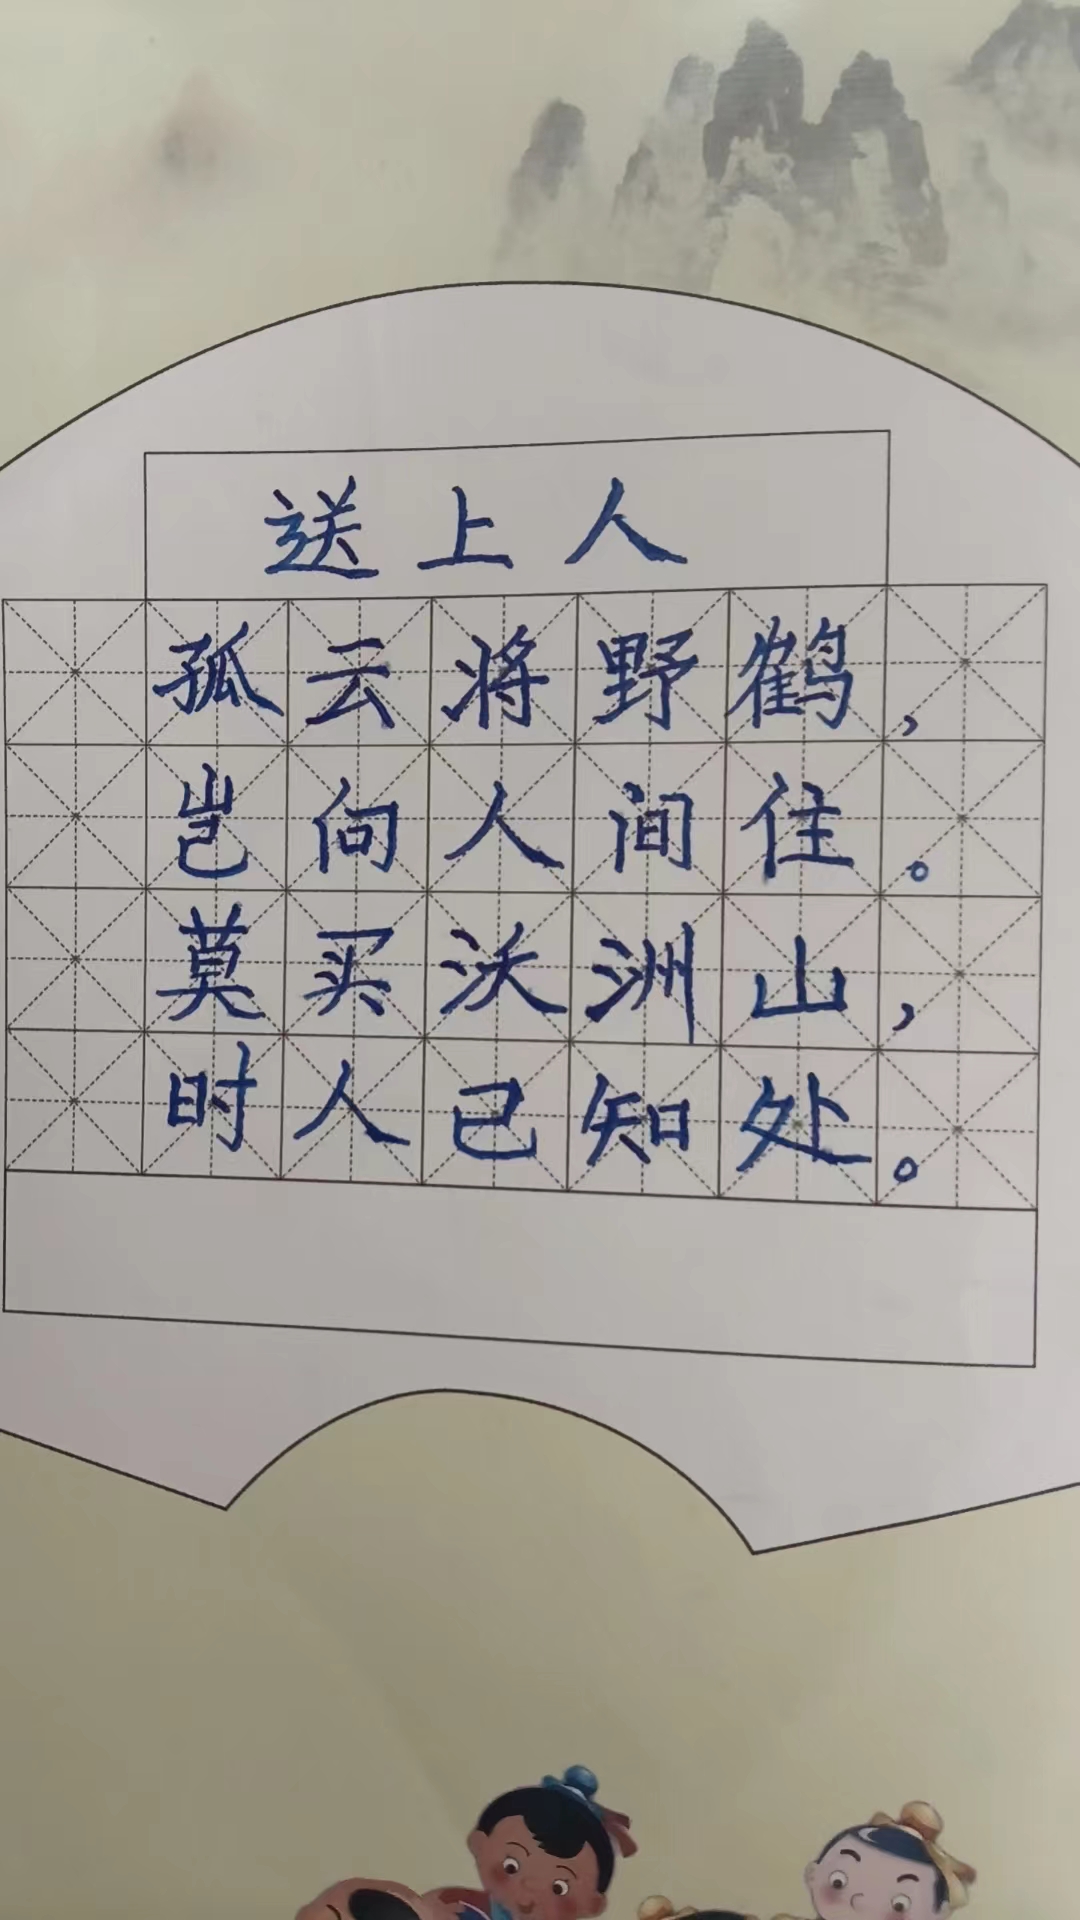 送上人
孤云将野鹤，
岂向人间住。
莫买沃洲山，
时人已知处。